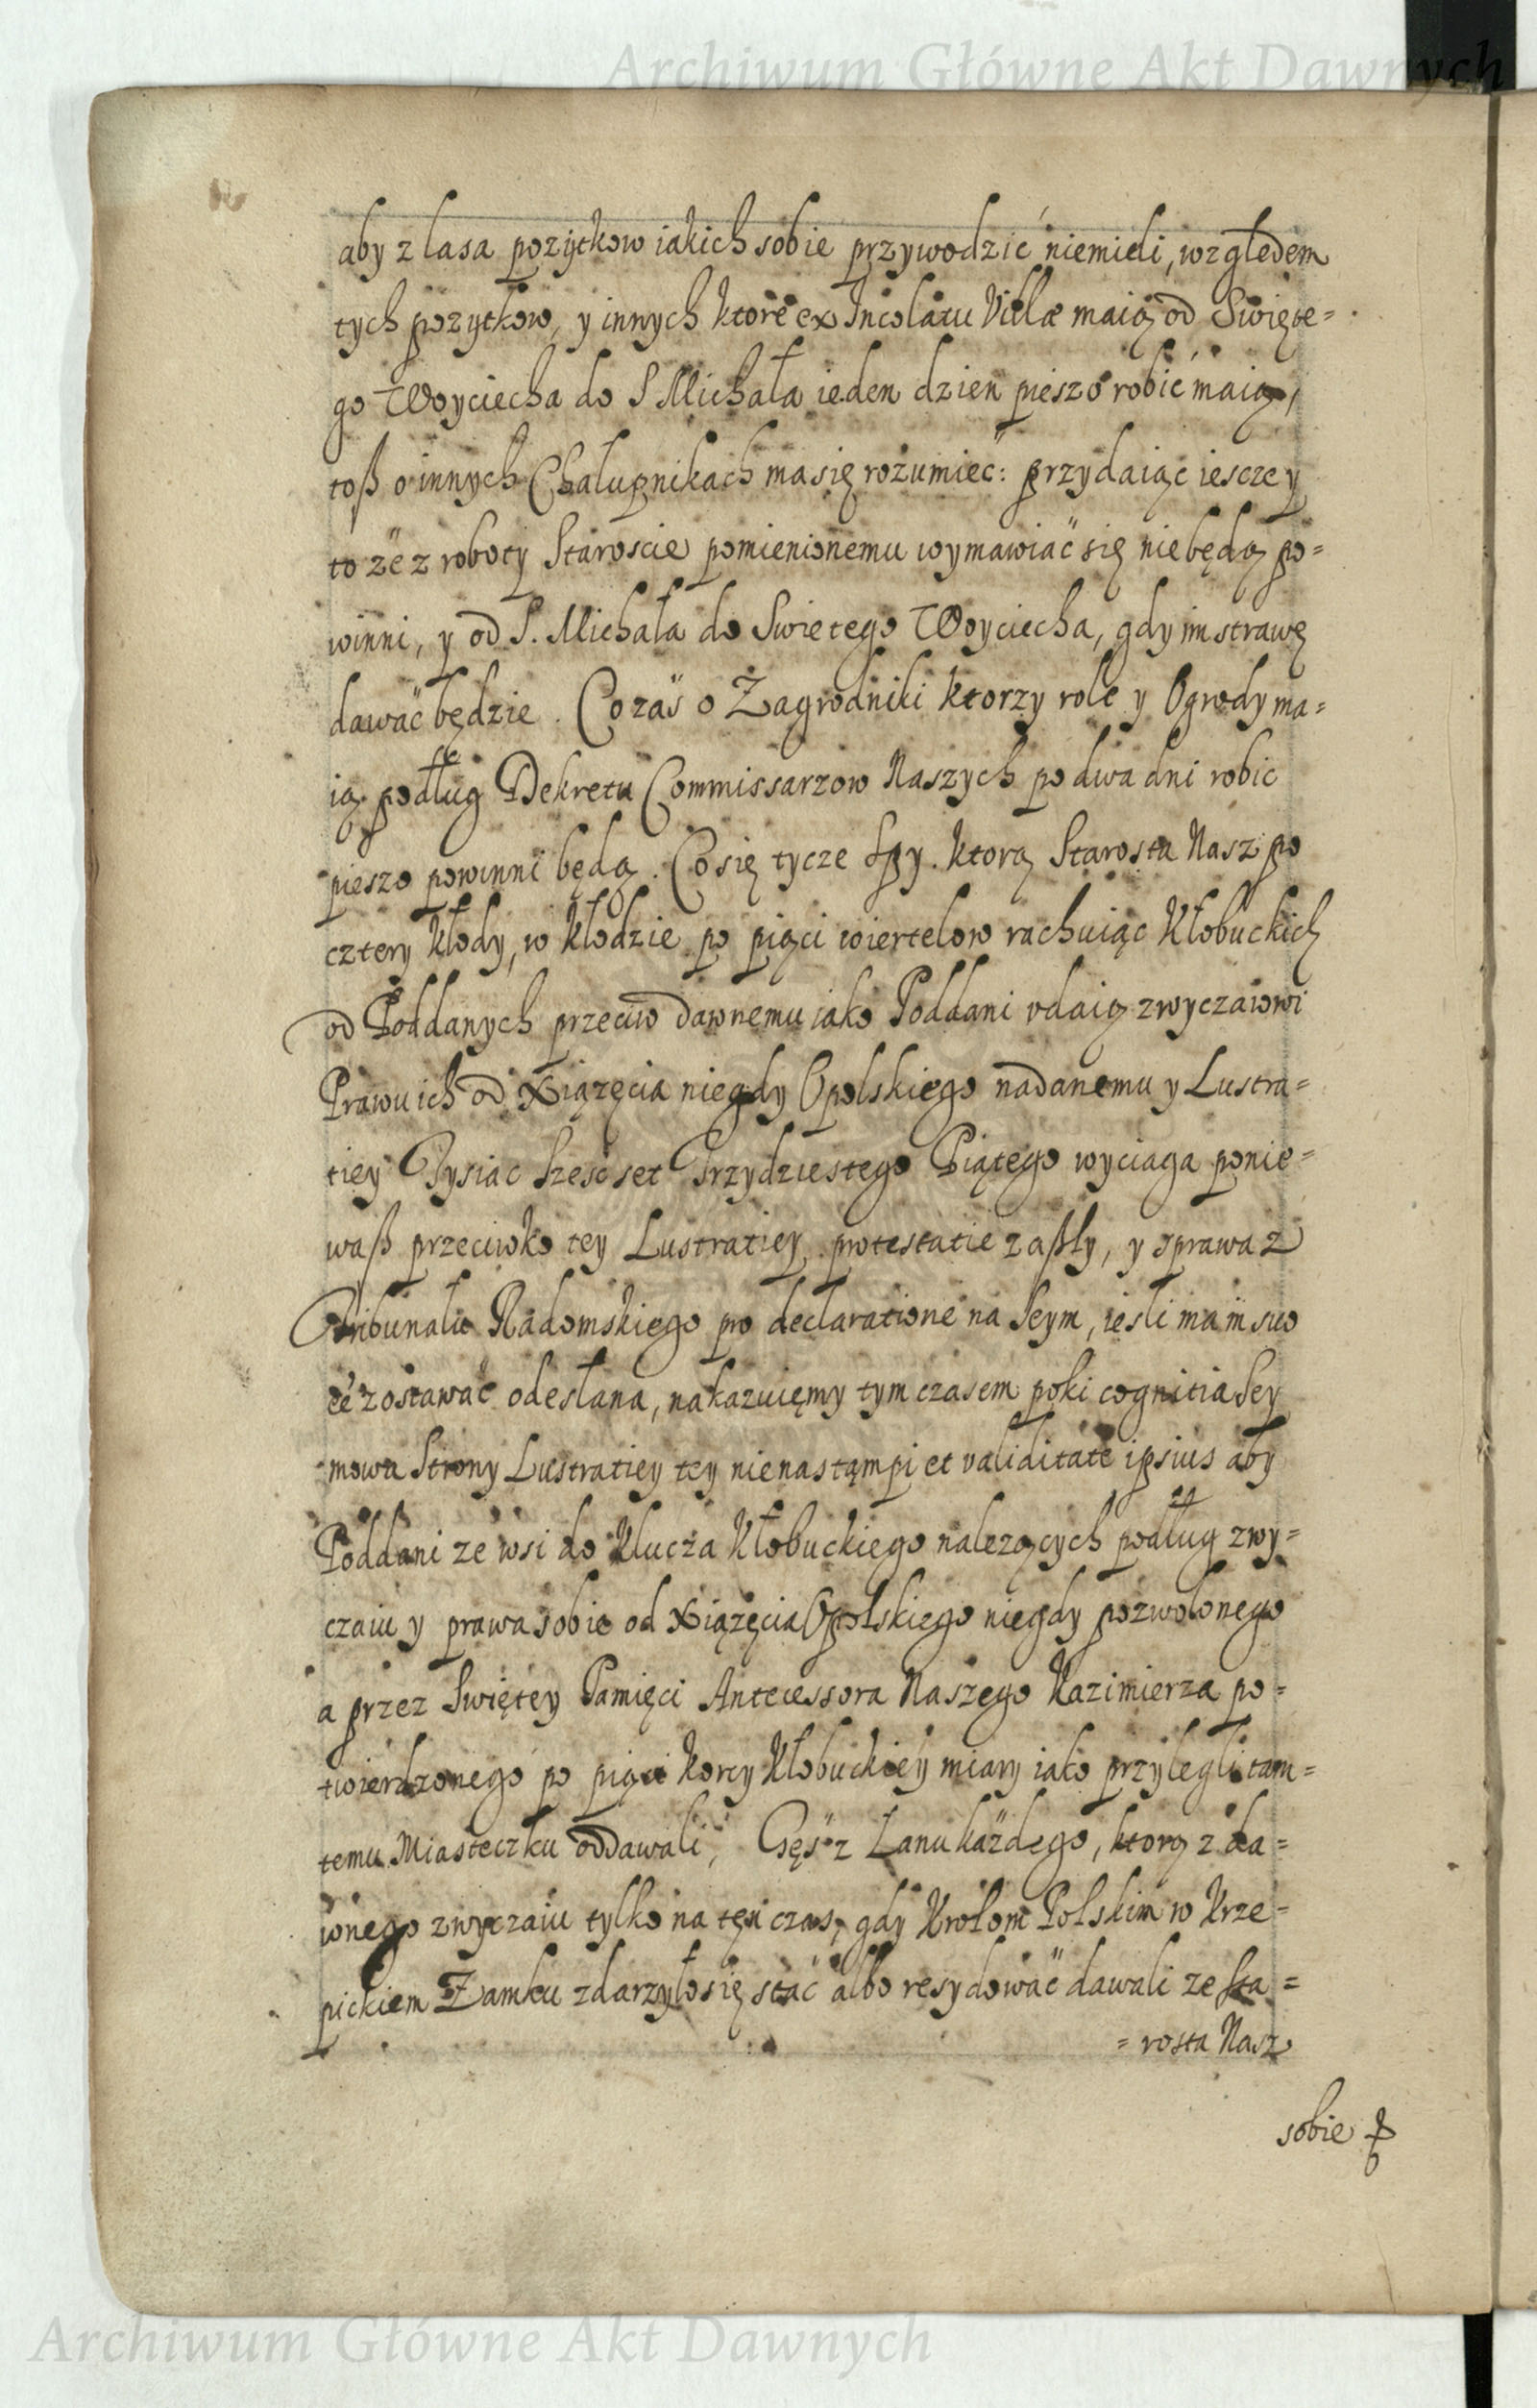 Archiwum Główne Akt Dawnych
aby z lasa pozytkow iakich sobie przywodzić niemieli, względem
tych pozytkow, y innych ktore ex Incolatu Villæ maią od Swięte=
go Woyciecha do S Michała ieden dzien pieszo robić maią,
toß o innych Chalupnikach ma się rozumiec: przydaiąc iescze y
to że z roboty Staroscie pomienionemu wymawiać się niebędą po=
winni, y od S. Michała do Swietego Woyciecha, gdy im strawę
dawać będzie. Co zaś o Zagrodniki ktorzy role y Ogrody ma=
ią podług Dekretu Commissarzow Naszych po dwa dni robic
pieszo powinni będą. Co się tycze Spy. ktorą Starosta Nasz po
cztery kłody, w kłodzie po pięci wiertelow rachuiąc Kłobuckich
od Poddanych przeciw dawnemu iako Poddani vdaią zwyczaiowi
Prawu ich od Xiązęcia niegdy Opolskiego nadanemu y Lustra=
tiey Tysiąc Szesc set Trzydziestego Piątego wyciaga ponie=
waß przeciwko tey Lustratiey protestatie zaßły, y sprawa z
Tribunału Radomskiego pro declaratione na Seym, iesli ma in suo
ēē zostawać odesłana, nakazuięmy tym czasem poki cognitia Sey
mowa Strony Lustratiey tey nienastąmpi et validitate ipsius aby
Poddani ze wsi do Klucza Kłobuckiego nalezących podług zwy=
czaiu y prawa sobie od Xiązęcia Opolskiego niegdy pozwolonego
a przez Swiętey Pamięci Antecessora Naszego Kazimierza po=
twierdzonego po pięci korcy Kłobuckiey miary iako przylegli tam=
temu Miasteczku oddawali, Gęś z Łanu każdego, ktorą z da=
wnego zwyczaiu tylko na ten czas, gdy Krolom Polskim w Krze=
pickiem Zamku zdarzyło się stać albo resydować dawali ze Sta=
=rosta Nasz
sobie
Archiwum Główne Akt Dawnych